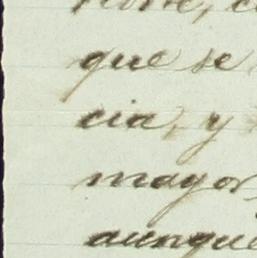 que se
cia, y
mayor,
aunque